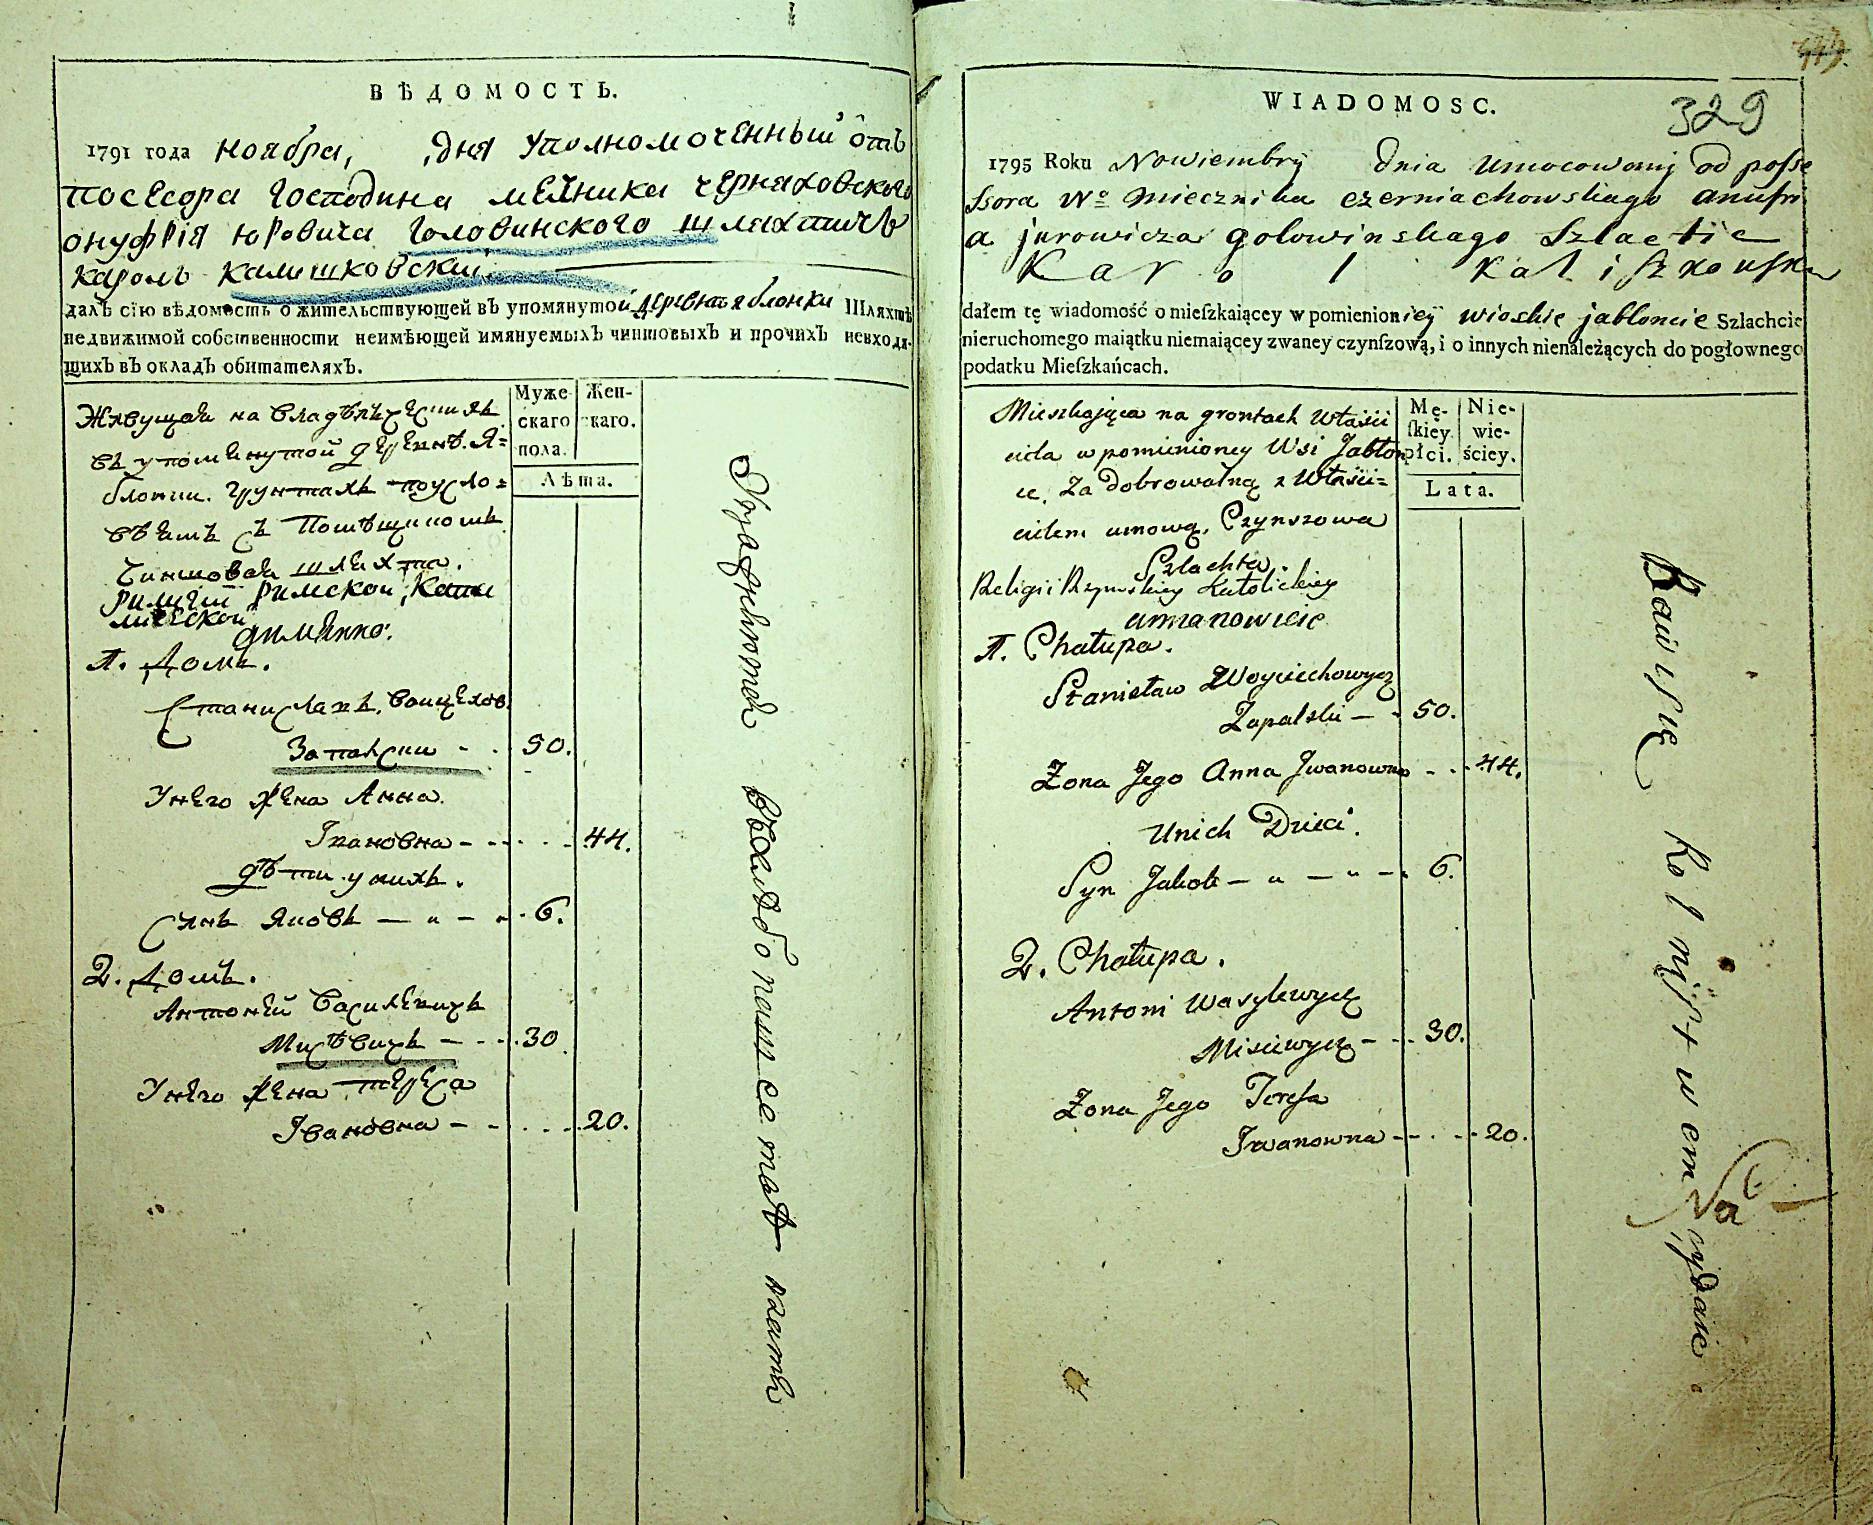 ВѢДОМОСТЬ.
1791 года ноября, дня уполномоченный отъ
посесора господина мечника черняховского
онуфрія юровича головинского шляхтичъ
кароль калишковский
далъ сію вѣдомость о жительствующей въ упомянутой деревнѣ яблонки Шляхтѣ
недвижимой собственности неимѣющей имянуемыхъ чиншовыхъ и прочихъ невходя-
щихъ въ окладъ обитателяхъ.
Муже-
скаго
пола.
Жен-
скаго.
Лѣта.
Живущая на владѣлческихъ
въ упомянутой деревнѣ Я=
блонки грунтахъ по усло=
віямъ съ помѣщикомъ
чиншовая шляхта.
Религіи Римской Като
лической
аимянно:
1. Домъ.
Станиславъ Войцехов.
Запалски - - 50.
У него жена Анна
Ивановна - - - - 44.
дѣти у нихъ.
Сынъ Яковъ — " — " 6.
2. Домъ.
Антоней Василевичъ
Мисѣвичъ - - - 30
У него жена Тереса
Ивановна - - - - 20.
Упражняются
WIADOMOSC.
329
1795 Roku Nowiembry dnia umocowony od posse
ssora Wo miecznika czerniachowskiago anufri
a jurowicza golowinskago Szlactic
Karol Kaliszkowski
dałem tę wiadomość o mieſzkaiącey w pomienioniey wioskie jabloncie Szlachcie
nieruchomego maiątku niemaiącey zwaney czynſzową, i o innych nienależących do pogłownego
podatku Mieſzkańcach.
Mę-
ſkiey
płci.
Nie-
wie-
ściey.
Lata.
Mieszkająca na grontach właści
ciela w pomienioney Wsi Jabłon
ce, Za dobrowolną z właści=
cielem umową, Czynszowa
Szlachta.
Religii Rzymskiey Katolickiey
amianowicie
1. Chałupa.
Stanisław Woyciechowycz
Zapalski — - 50.
Zona Jego Anna Jwanowna - - - 44.
Unich Dzieci.
Syn Jakob — " — " — 6.
2. Chałupa.
Antoni Wasylewycz
Misiewycz - - - 30.
Zona Jego Teresa
Iwanowna - - - - 20.
Bawi się Rolnistwem